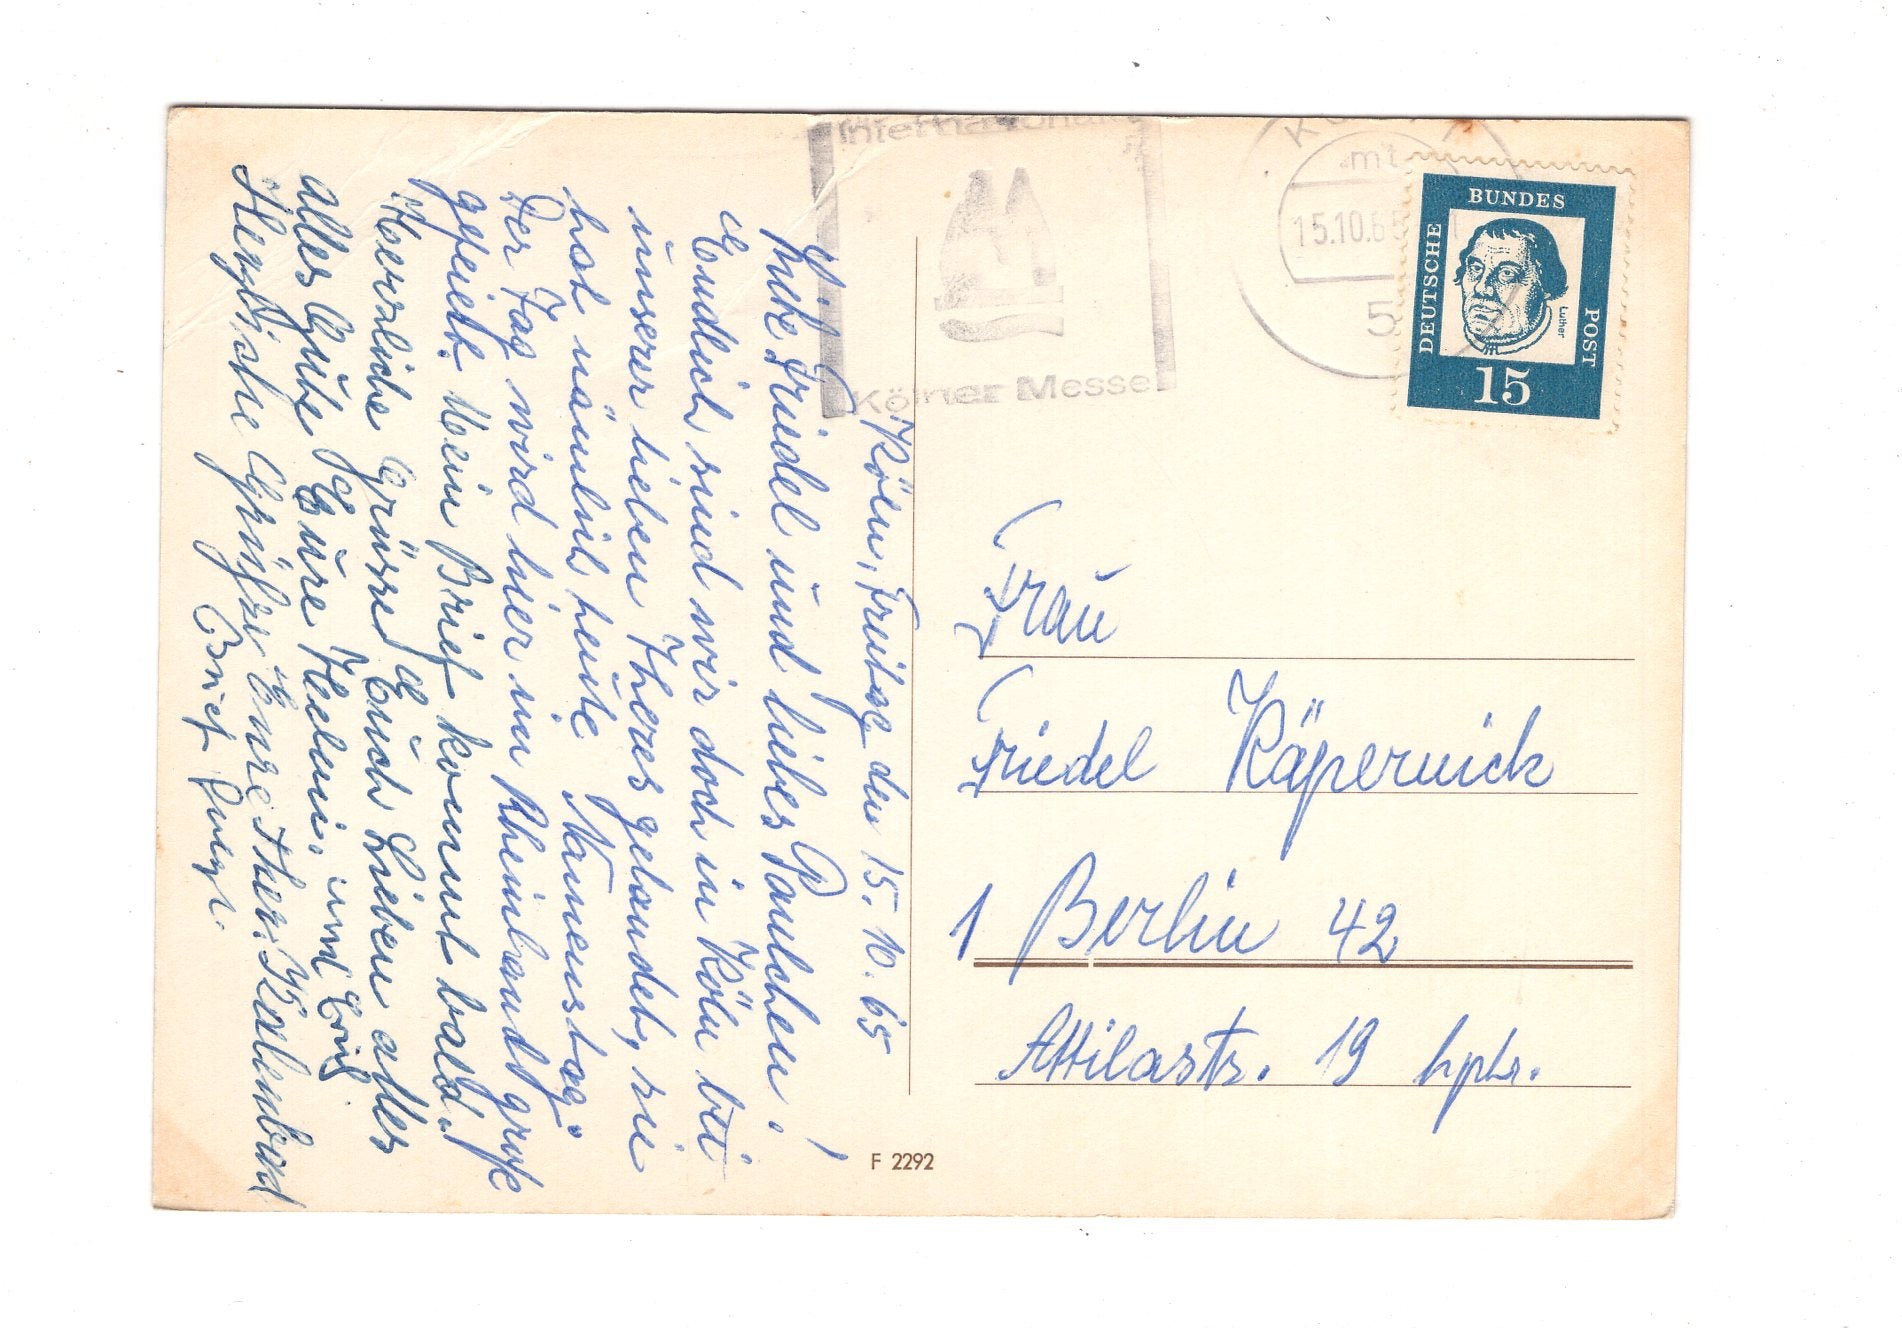 Köln, Freitag den 15. 10. 65
Liebe Friedel und liebes Paulchen!
Endlich sind wir doch in Köln bei
unserer lieben Theres gelandet, sie
hat nämlich heute Namenstag.
Der Tag wird hier im Rheinland groß
gefeiert. Mein Brief kommt bald!
Herzliche Grüsse Euch Lieben alles
alles Gute Eure Helmi. und
Herzliche Grüße, Eure Ther.
Brief folgt.
Internationale
Kölner Messe
15.10.65
5
DEUTSCHE
BUNDES
POST
Luther
15
Frau
Friedel Käpernick
1 Berlin 42
Attilastr. 19 hptr.
F 2292